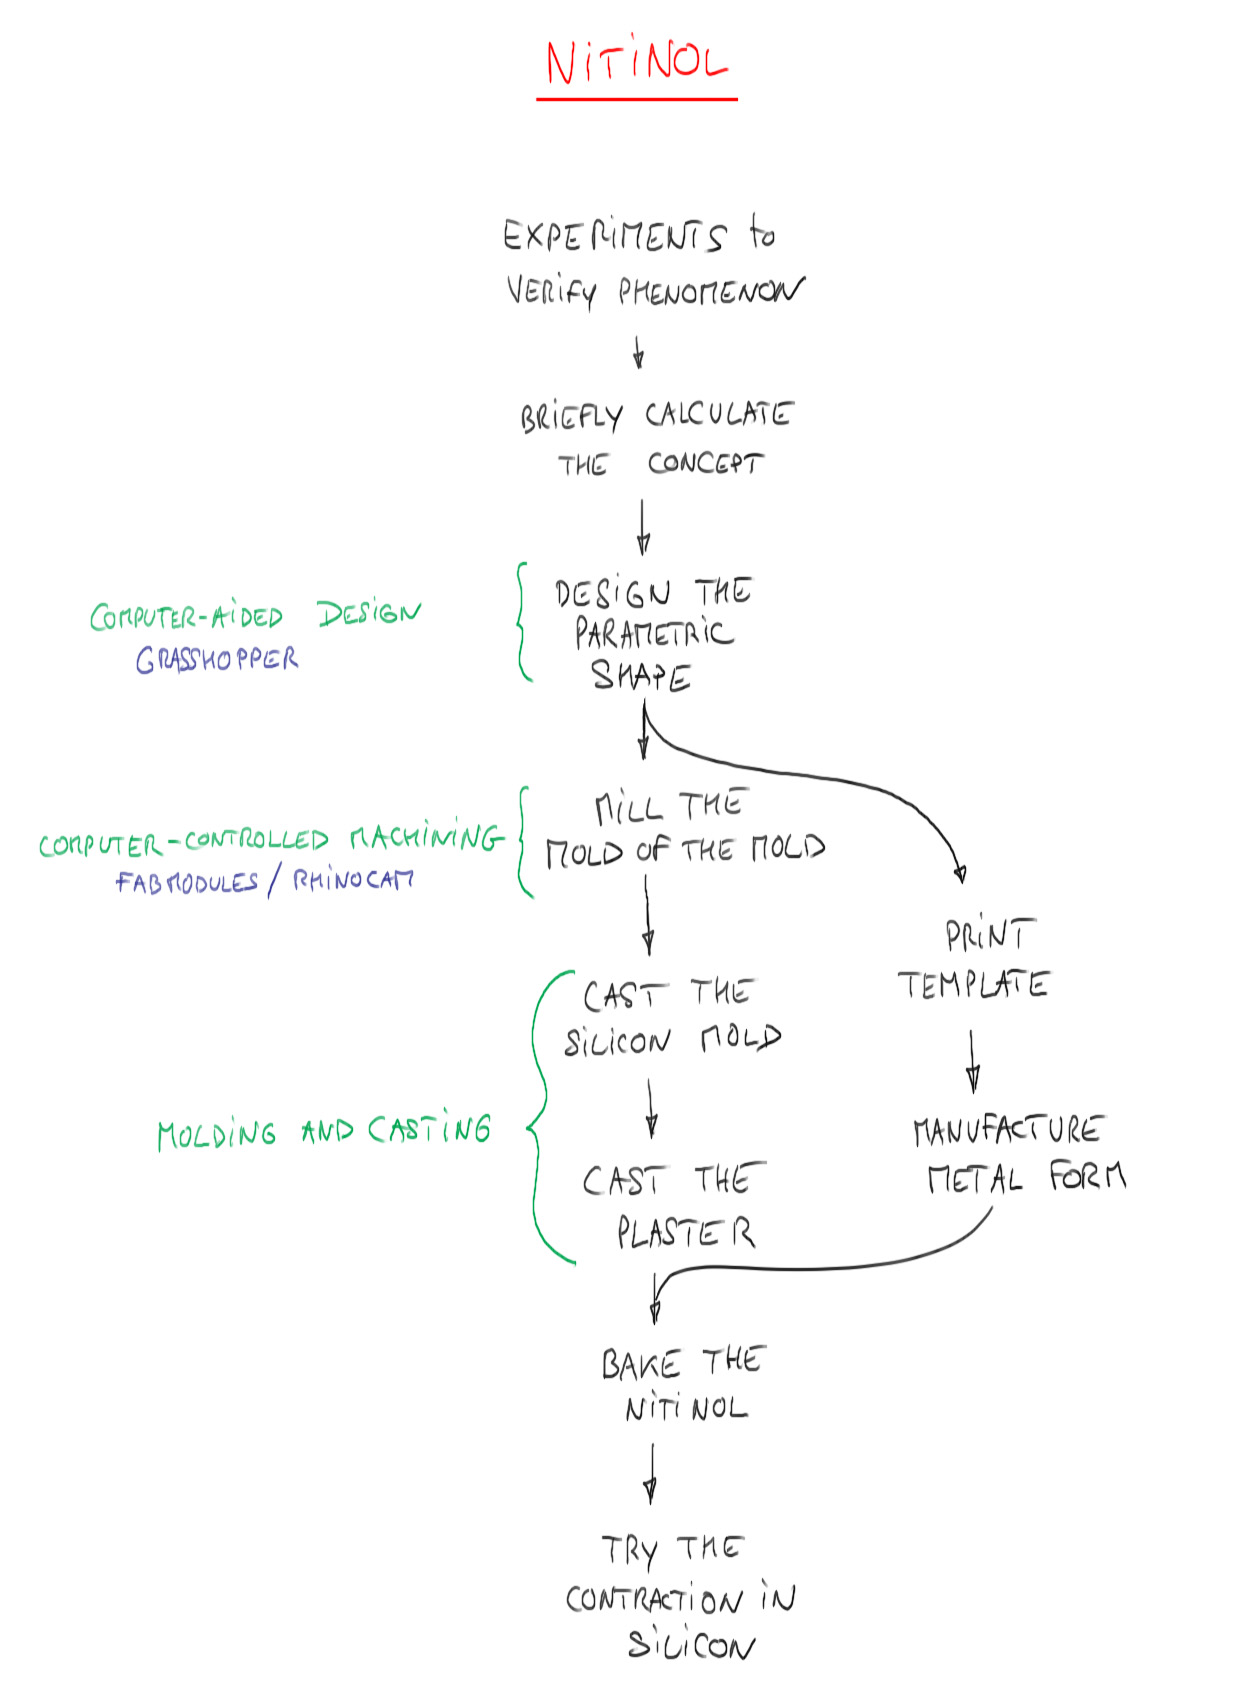 NiTiNOL
EXPERiMENTS to
VERiFY PHENOMENON
BRiEFLY CALCULATE
THE CONCEPT
DESiGN THE
PARAMETRiC
SHAPE
COMPUTER-AiDED DESiGN
GRASSHOPPER
MiLL THE
MOLD OF THE MOLD
COMPUTER-CONTROLLED MACHiNiNG
FABMODULES / RHiNOCAM
PRiNT
TEMPLATE
CAST THE
SiLiCON MOLD
MANUFACTURE
METAL FORM
MOLDiNG AND CASTiNG
CAST THE
PLASTER
BAKE THE
NiTiNOL
TRY THE
CONTRACTiON iN
SiLiCON